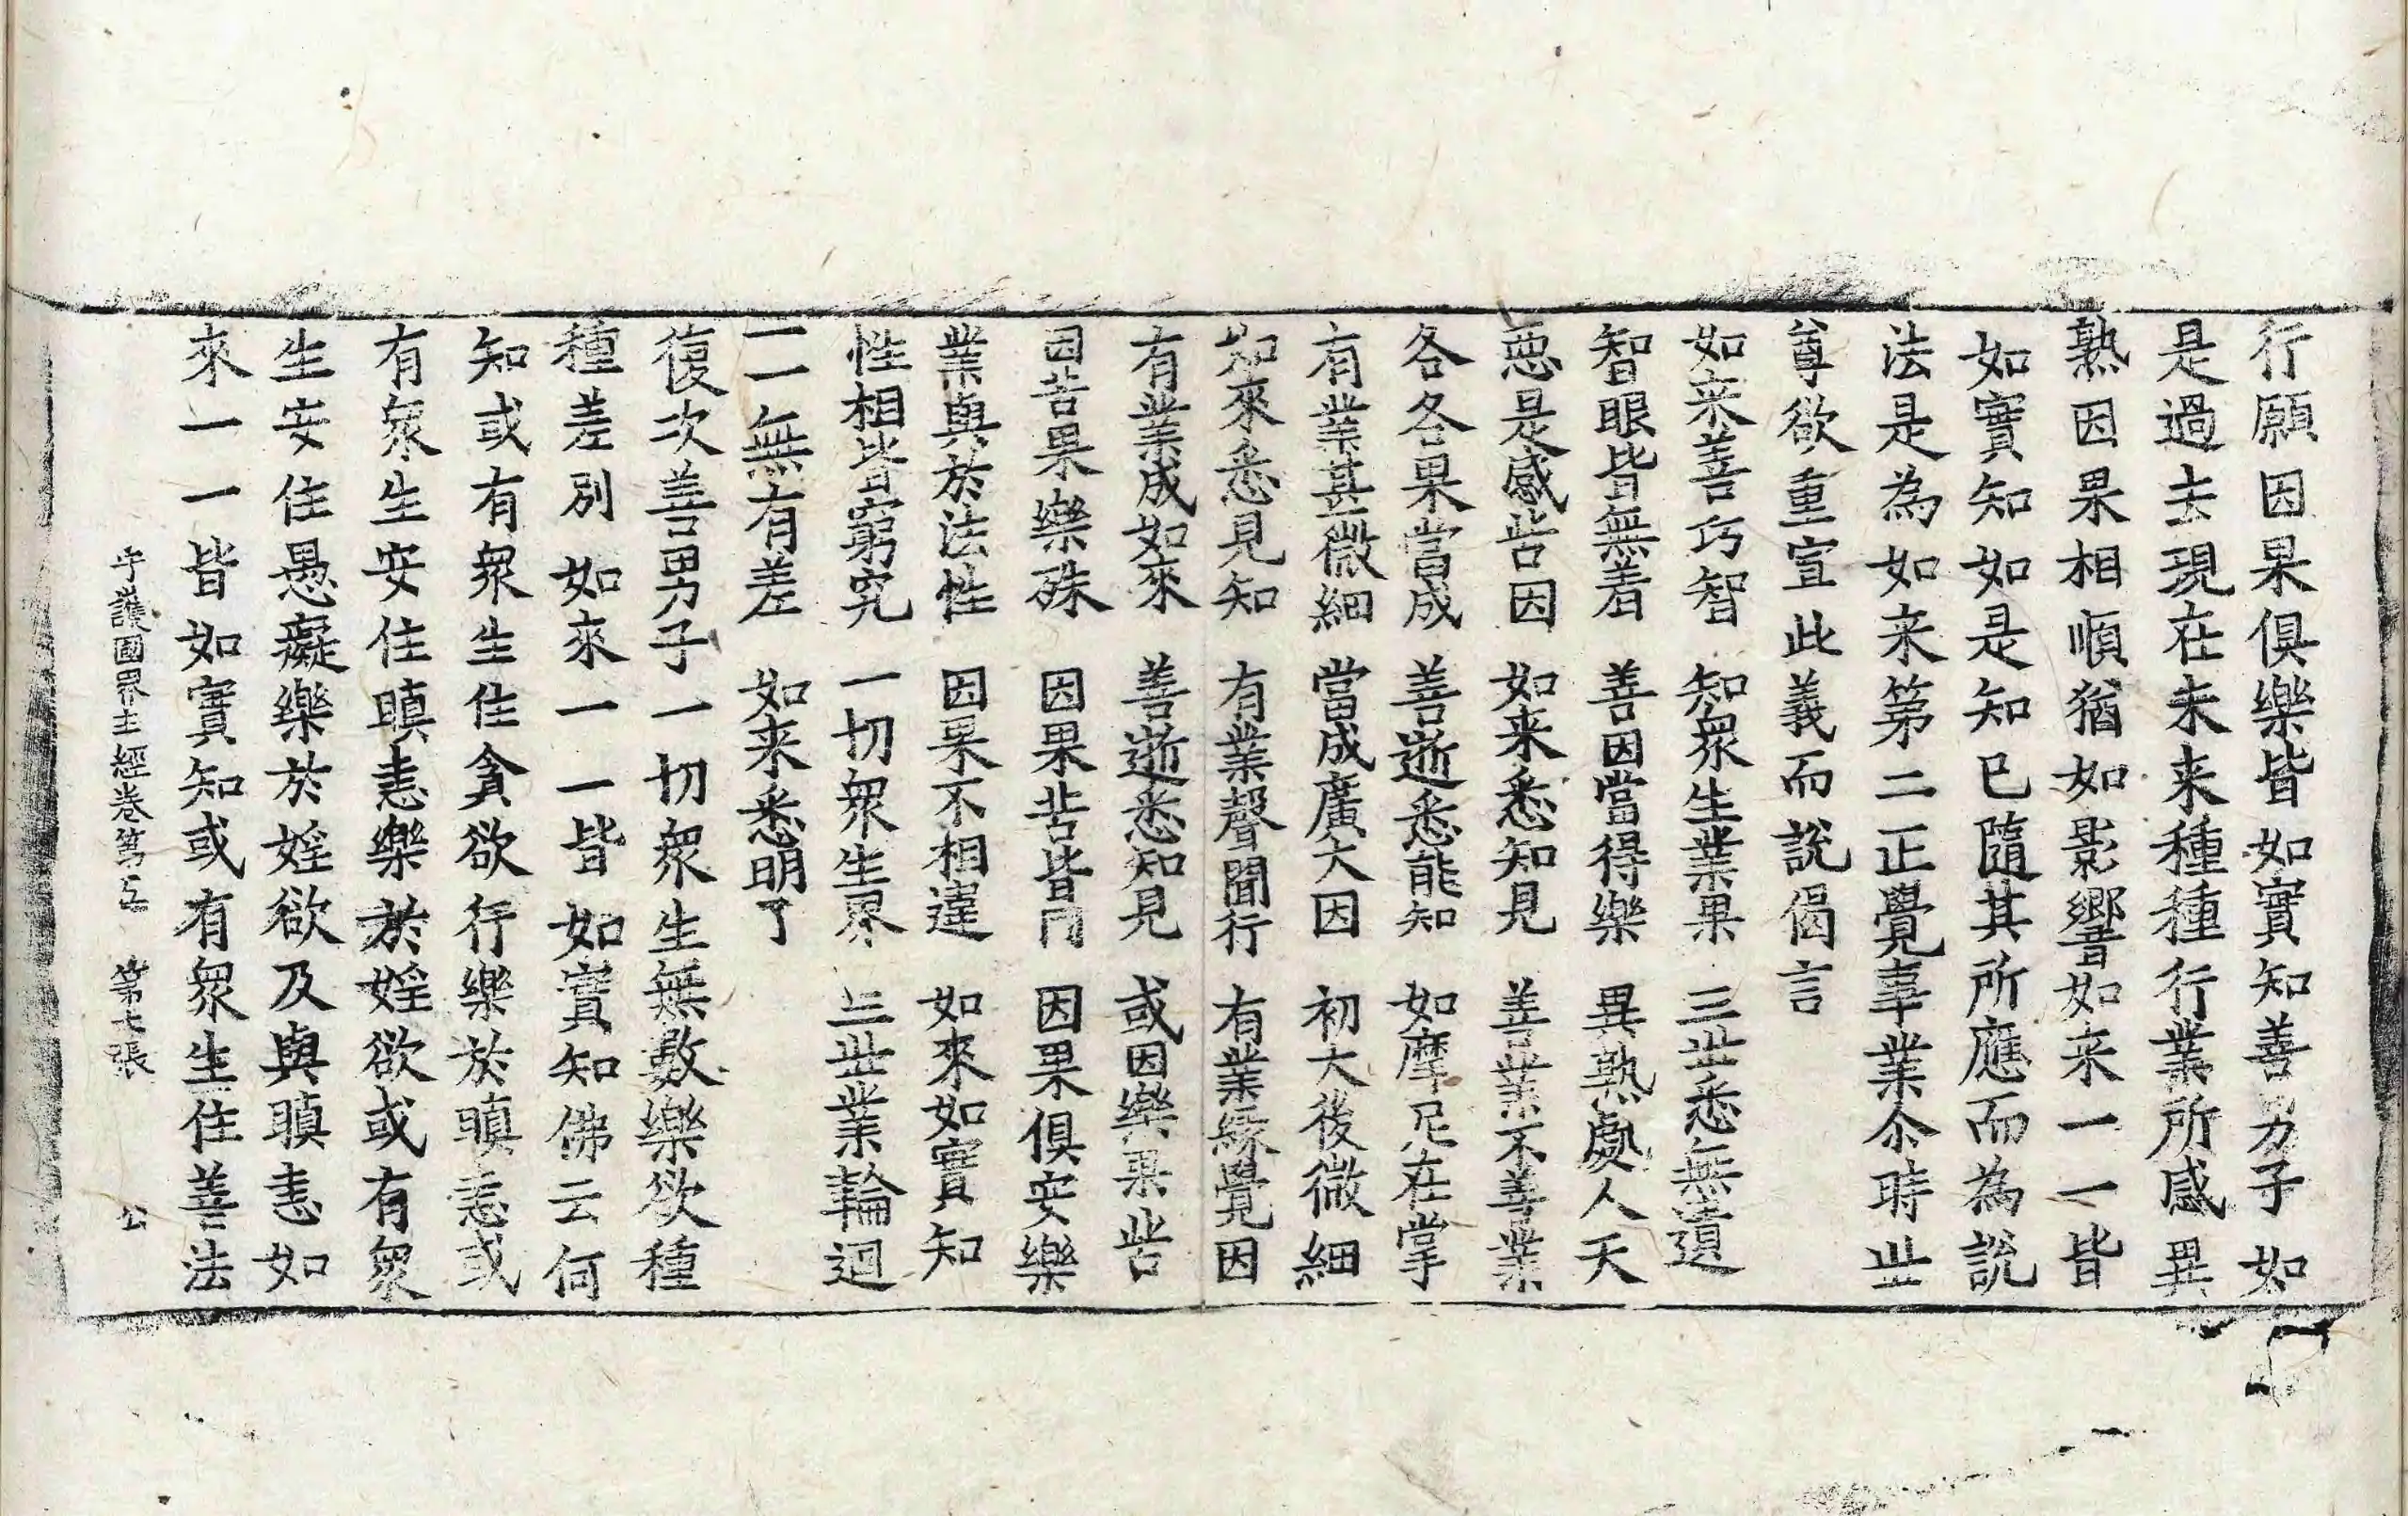 行願因果俱樂皆如實知善男子如
是過去現在未来種種行業所感異
熟因果相順猶如影響如来一一皆
如實知如是知已隨其所應而為說
法是為如来第二正覺事業尒時丗
尊欲重宣此義而說偈言
如来善巧智　知衆生業果　三丗悉無遺
智眼皆無㝵　善因當得樂　異熟處人天
惡是感苦因　如来悉知見　善業不善業
各各果當成　善逝悉能知　如摩尼在掌
有業甚微細　當成廣大因　初大後微細
如來悉見知　有業聲聞行　有業緣覺因
有業成如來　善逝悉知見　或因樂果苦
因苦果樂殊　因果苦皆同　因果俱安樂
業與於法性　因果不相違　如來如實知
性相皆窮究　一切衆生界　三丗業輪迴
一一無有差　如来悉明了
復次善男子一切衆生無數樂欲種
種差別如來一一皆如實知佛云何
知或有衆生住貪欲行樂於瞋恚或
有衆生安住瞋恚樂於婬欲或有衆
生安住愚癡樂於婬欲及與瞋恚如
來一一皆如實知或有衆生住善法
守護國界主經卷第五　第七張　公